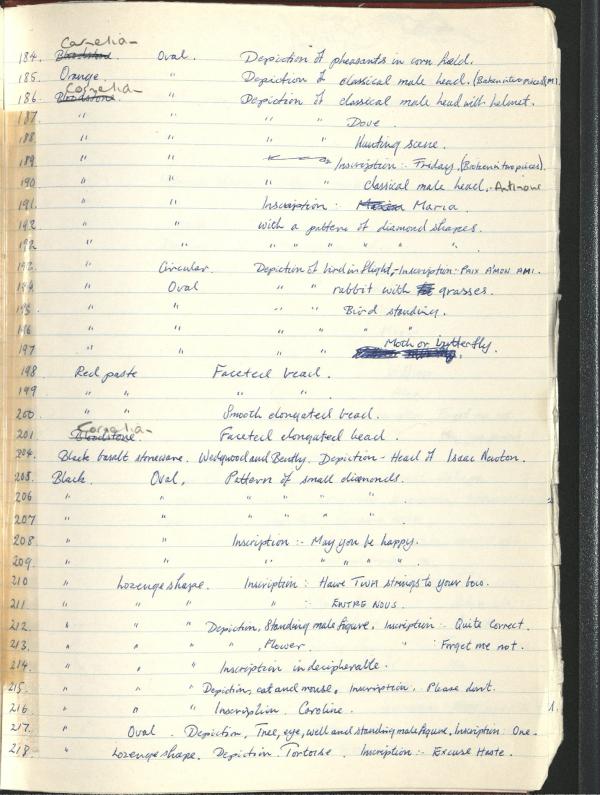 Carelia-
184. Bloodstone Oval. Depiction of pheasants in corn field.
185. Orange. " Depiction of classical male head. (Baken in two pieces)
Corelia-
186. Bloodstone. " Depiction of classical male head with helmet.
187. " " " " Dove.
188. " " " " Hunting scene.
189. " " Inscription :- Friday, (Baken in two pieces).
190 " " " " classical male head. - Antinous
191. " " Inscription : Maria.
192. " " with a pattern of diamond shapes.
192. " " " " " " "
193. " Circular. Depiction of bird in flight, - Inscription :- PAIX A'MON AMI.
194. " Oval " " rabbit with grasses.
195. " " " " Bird standing.
196 " " " " " "
197 " " Moth or butterfly.
198 Red paste Faceted bead.
199 " " " "
200. " " Smooth elongated bead.
Cornelia-
201. Bloodstone. Faceted elongated bead.
204. Black basalt stoneware. Wedgwood and Bently. Depiction - Head of Isaac Newton.
205. Black. Oval, Pattern of small diamonds.
206 " " " " " "
207 " " " " " "
208 " " Inscription :- May you be happy.
209. " " " " " " "
210 " Lozenge shape. Inscription : Have TWA strings to your bow.
211 " " " " : ENTRE NOUS.
212. " " " Depiction, Standing male figure. Inscription :- Quite Correct.
213. " " " " Flower. " : Forget me not.
214. " " " Inscription indecipherable.
215. " " " Depiction, cat and mouse, Inscription. Please don't.
216 " " " Inscription. Caroline. 1.
217. " Oval. Depiction, Tree, eye, well and standing male figure, Inscription : One.
218. " Lozenge shape. Depiction. Tortoise. Incription :- Excuse Haste.